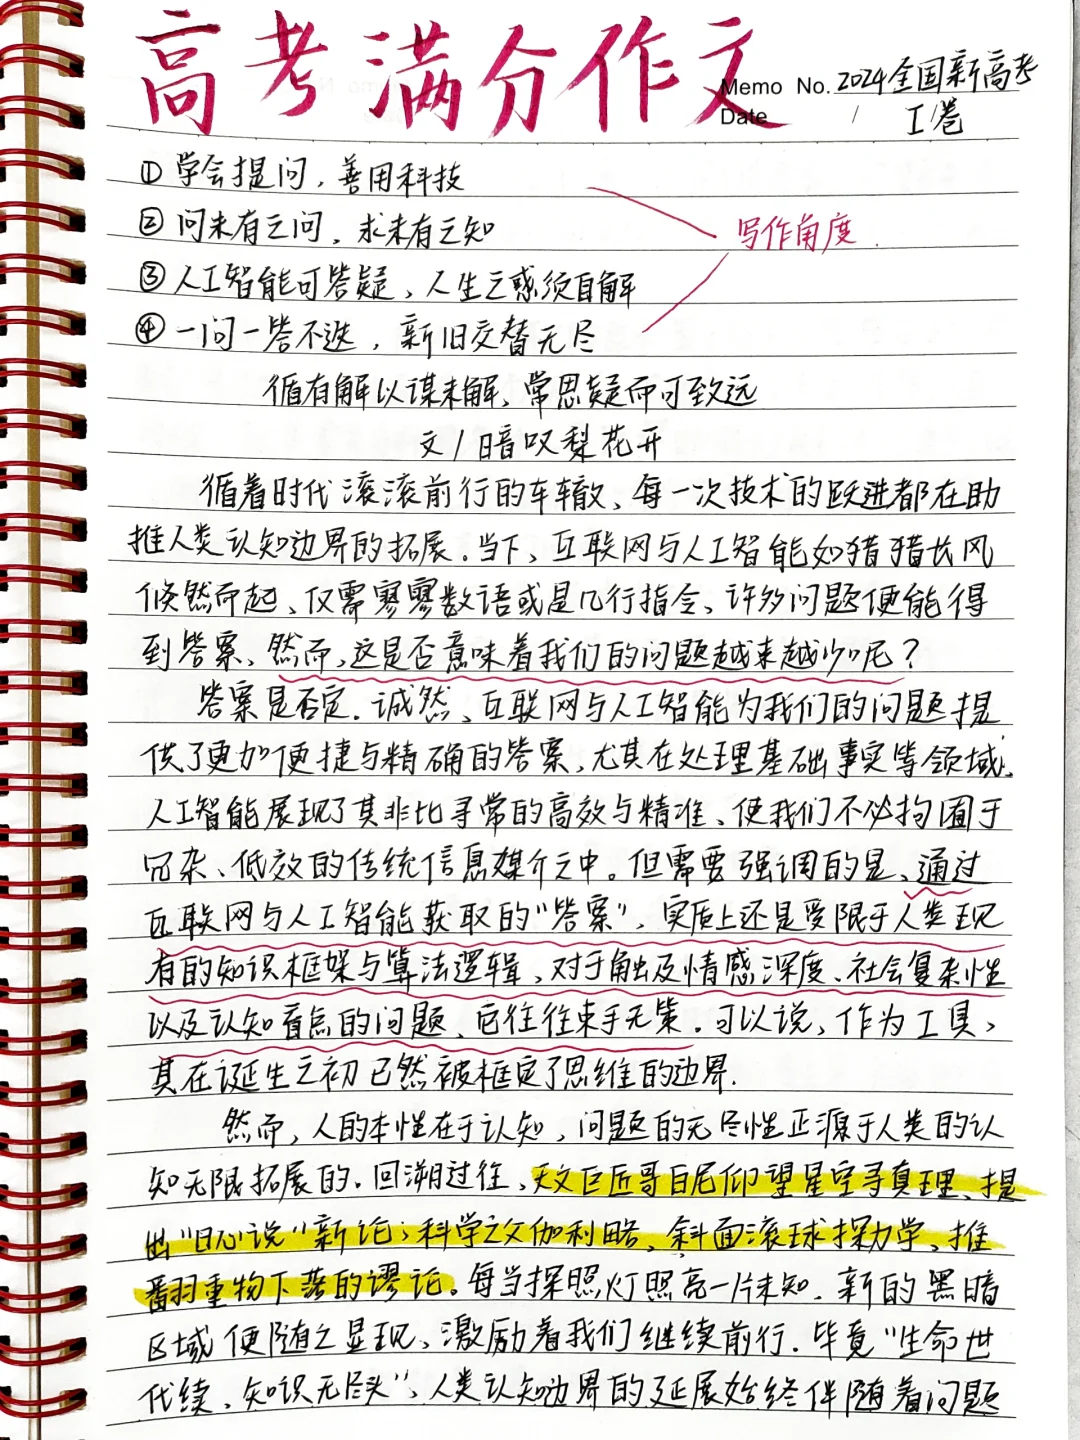 高考满分作文
Memo No. 2024全国新高考
Date / I卷
①学会提问，善用科技
②问未有之问，求未有之知
写作角度
③人工智能可答疑，人生之惑须自解
④一问一答不迭，新旧交替无尽
循有解以谋未解，常思疑而可致远
文/暗叹梨花开
循着时代滚滚前行的车辙，每一次技术的跃进都在助
推人类认知边界的拓展。当下，互联网与人工智能如猎猎长风
倏然而起，仅需寥寥数语或是几行指令，许多问题便能得
到答案，然而，这是否意味着我们的问题越来越少呢？
答案是否定。诚然，互联网与人工智能为我们的问题提
供了更加便捷与精确的答案，尤其在处理基础事实等领域，
人工智能展现了其非比寻常的高效与精准，使我们不必拘囿于
冗杂、低效的传统信息媒介之中。但需要强调的是，通过
互联网与人工智能获取的“答案”，实质上还是受限于人类现
有的知识框架与算法逻辑，对于触及情感深度、社会复杂性
以及认知盲点的问题，它往往束手无策。可以说，作为工具，
其在诞生之初已然被框定了思维的边界.
然而，人的本性在于认知，问题的无尽性正源于人类的认
知无限拓展的。回溯过往，天文巨匠哥白尼仰望星空寻真理，提
出“日心说”新论；科学之父伽利略，斜面滚球探力学，推
翻重物下落的谬论。每当探照灯照亮一片未知，新的黑暗
区域便随之显现，激励着我们继续前行. 毕竟“生命世
代续，知识无尽头”，人类认知边界的延展始终伴随着问题